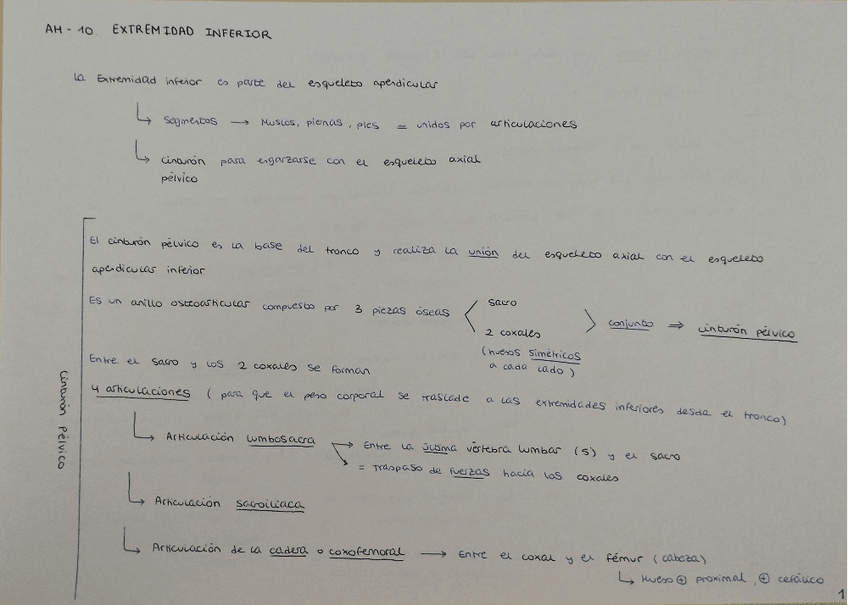 AH - 10 EXTREMIDAD INFERIOR
La Extremidad inferior es parte del esqueleto apendicular
↳ Segmentos → Muslos, piernas, pies = unidos por articulaciones
↳ Cinturón para engarzarse con el esqueleto axial
pélvico
El cinturón pélvico es la base del tronco y realiza la unión del esqueleto axial con el esqueleto
apendicular inferior
Es un anillo osteoarticular compuesto por 3 piezas óseas < sacro
2 coxales > conjunto ⇒ cinturón pélvico
(huesos simétricos
a cada lado)
Entre el sacro y los 2 coxales se forman
4 articulaciones (para que el peso corporal se traslade a las extremidades inferiores desde el tronco)
↳ Articulación lumbosacra → Entre la última vértebra lumbar (5) y el sacro
= Traspaso de fuerzas hacia los coxales
↳ Articulación sacroilíaca
↳ Articulación de la cadera o coxofemoral → Entre el coxal y el fémur (cabeza)
↳ Hueso ⊕ proximal, ⊕ cefálico
Cinturón pélvico
1